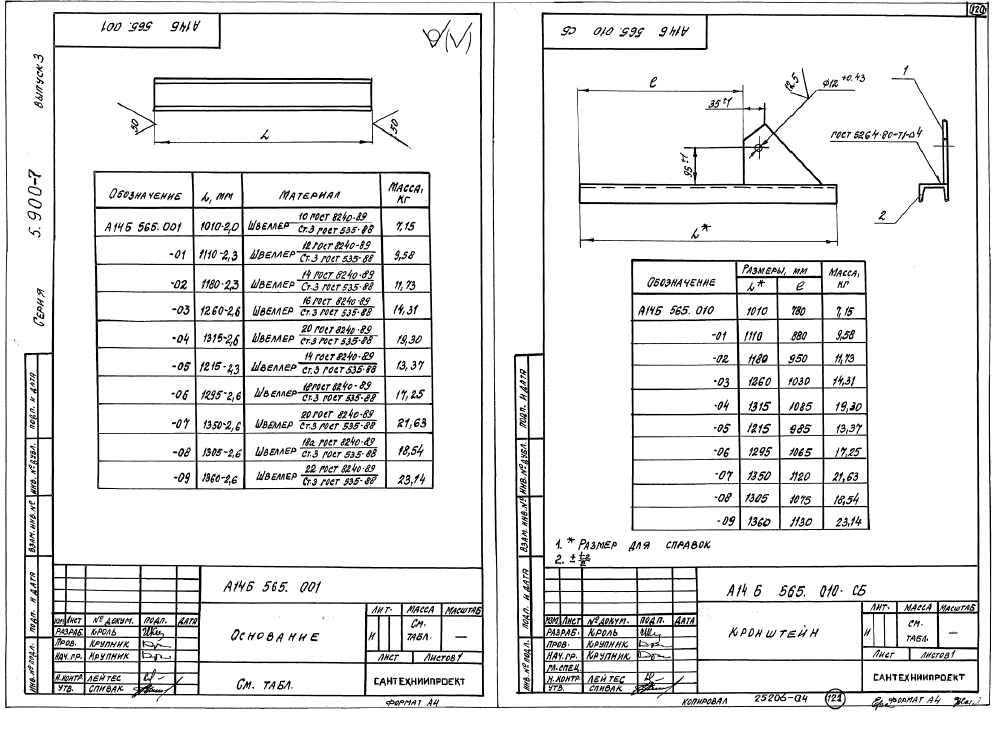 120
А14Б 565. 001
50
L
50
Серия 5.900-7 выпуск 3
Обозначение L, мм Материал Масса, кг
А14Б 565.001 1010-2,0 Швеллер 10 ГОСТ 8240-89 / Ст.3 ГОСТ 535-88 7,15
-01 1110-2,3 Швеллер 12 ГОСТ 8240-89 / Ст.3 ГОСТ 535-88 9,58
-02 1180-2,3 Швеллер 14 ГОСТ 8240-89 / Ст.3 ГОСТ 535-88 11,73
-03 1260-2,6 Швеллер 16 ГОСТ 8240-89 / Ст.3 ГОСТ 535-88 14,31
-04 1315-2,6 Швеллер 20 ГОСТ 8240-89 / Ст.3 ГОСТ 535-88 19,30
-05 1215-2,3 Швеллер 14 ГОСТ 8240-89 / Ст.3 ГОСТ 535-88 13,37
-06 1295-2,6 Швеллер 18 ГОСТ 8240-89 / Ст.3 ГОСТ 535-88 17,25
-07 1350-2,6 Швеллер 20 ГОСТ 8240-89 / Ст.3 ГОСТ 535-88 21,63
-08 1305-2,6 Швеллер 18а ГОСТ 8240-89 / Ст.3 ГОСТ 535-88 18,54
-09 1360-2,6 Швеллер 22 ГОСТ 8240-89 / Ст.3 ГОСТ 535-88 23,14
Инв. № подл. Подп. и дата Взам. инв. № Инв. № дубл. Подп. и дата
А14Б 565. 001
Изм Лист № докум. Подп. Дата
Разраб. Кроль
Пров. Крупник
Нач. гр. Крупник
Н. контр. Лейтес
Утв. Спивак
Основание
Лит. Масса Масштаб
И См. табл. —
Лист Листов 1
См. табл.
Сантехниипроект
Формат А4
А14Б 565. 010 СБ
e
35±1
12.5
Ø12 +0.43
1
ГОСТ 5264-80-Т1-△4
95±1
2
L*
Обозначение Размеры, мм Масса, кг
L* e
А14Б 565.010 1010 780 7,15
-01 1110 880 9,58
-02 1180 950 11,73
-03 1260 1030 14,31
-04 1315 1085 19,30
-05 1215 985 13,37
-06 1295 1065 17,25
-07 1350 1120 21,63
-08 1305 1075 18,54
-09 1360 1130 23,14
1. * Размер для справок
2. ± t2/2
Инв. № подл. Подп. и дата Взам. инв. № Инв. № дубл. Подп. и дата
А14Б 565. 010 СБ
Изм Лист № докум. Подп. Дата
Разраб. Кроль
Пров. Крупник
Нач. гр. Крупник
Гл. спец.
Н. контр. Лейтес
Утв. Спивак
Кронштейн
Лит. Масса Масштаб
И См. табл. —
Лист Листов 1
Сантехниипроект
Копировал 25206-04 121 Формат А4